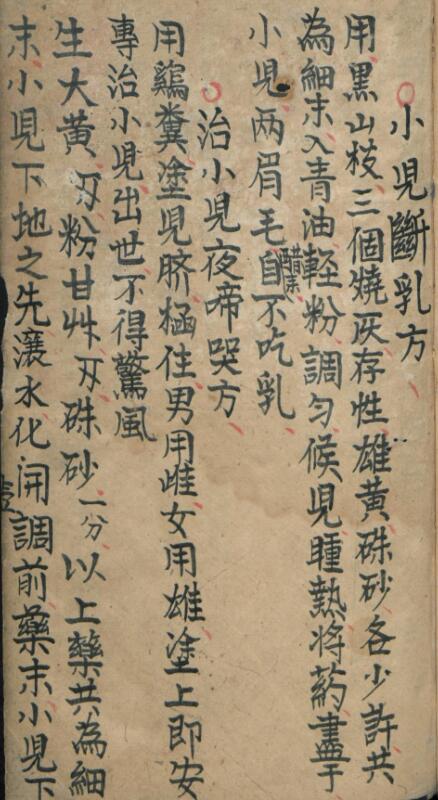 小児斷乳方
用黑山枝三個燒灰存性雄黃硃砂各少許共
為細末入青油輕粉調匀候児睡熱将葯畫于
小児两眉毛自不吃乳
醋
治小児夜啼哭方
用鷄糞塗児脐極住男用雌女用雄塗上即安
專治小児出世不得驚風
生大黃刄粉甘艸刄硃砂一分以上藥共為細
末小児下地之先瀼水化開調前藥末小児下